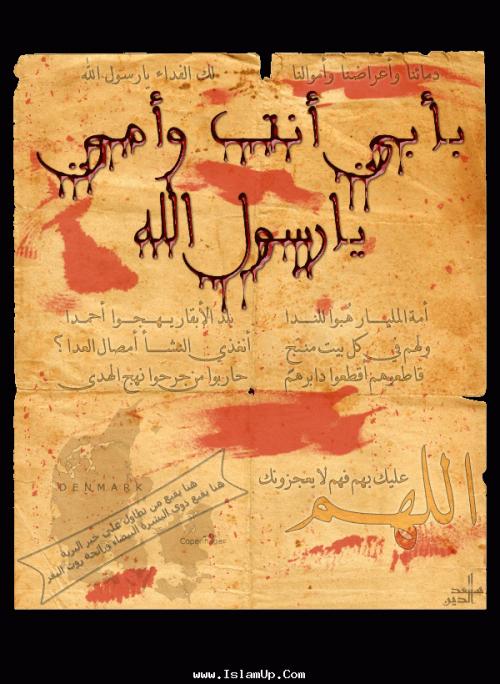 دمائنا وأعراضنا وأموالنا لك الفداء يارسول الله
بأبي أنت وأمي
يارسول الله
أمة المليار هُبوا للندا بلد الأبقار يهجوا أحمدا
ولهم في كل بيت منتج
قاطعوهم أقطعوا دابرهمُ حاربوا من جرحوا نهج الهدى
DENMARK
Copenhagen
هنا يقبع من تطاول على خير البرية
هنا يقبع ذوي البشرة البيضاء ورائحة روث البقر
اللهم
عليك بهم فهم لا يعجزونك
سعد الدين
www.IslamUp.Com